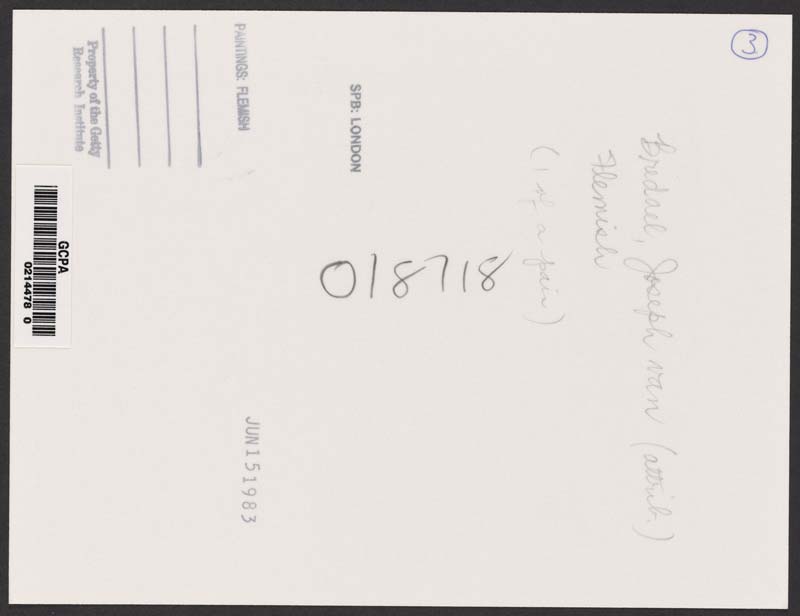 3
Bredael, Joseph van (attrib.)
Flemish
(1 of a pair)
018718
SPB: LONDON
PAINTINGS: FLEMISH
JUN 15 1983
Property of the Getty
Research Institute
GCPA
0214478 0